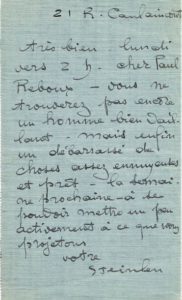 21 R. Caulaincourt
Très bien. lundi
vers 2 h. cher Paul
Reboux - vous ne
trouverez pas encore
un homme bien vail-
lant - mais enfin
un débarrassé de
choses assez ennuyeuses
et prêt - la semai-
ne prochaine - à se
pouvoir mettre un peu
activement à ce que vous
projetons
votre
Steinlen